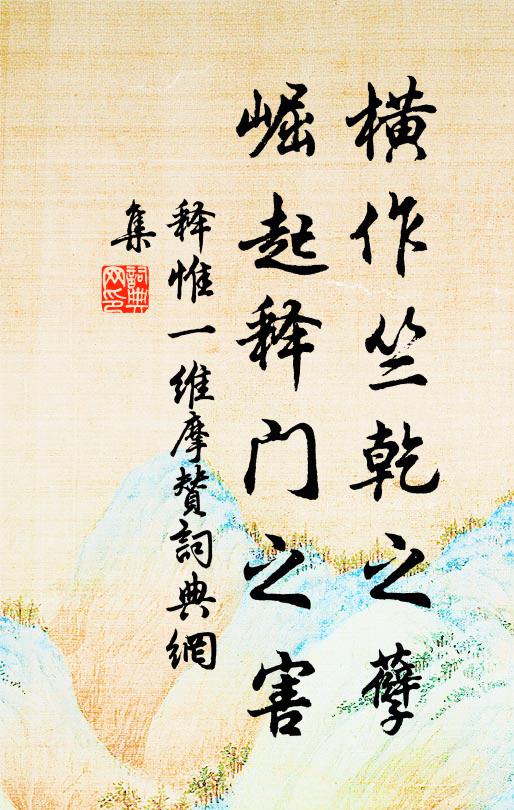 横作竺乾之孽
崛起释门之害
释惟一维摩賛詞典網
集
詞典
网印